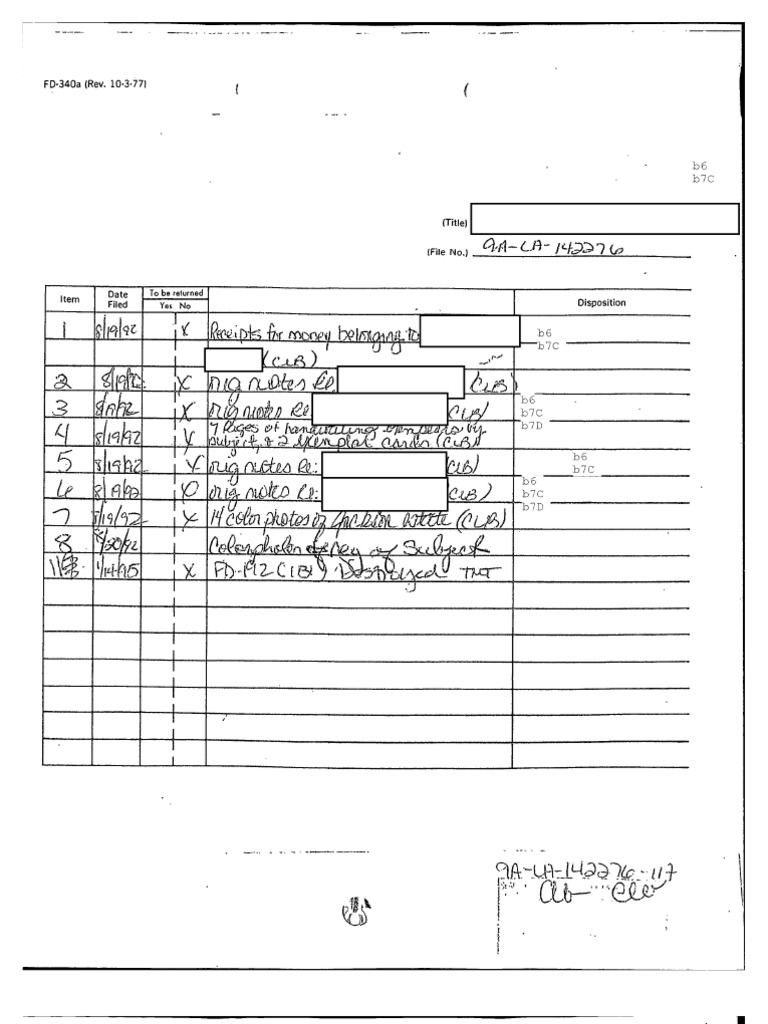 FD-340a (Rev. 10-3-77)
b6
b7C
(Title)
(File No.) 9A-LA-142276
Item Date Filed To be returned Yes No Disposition
1 8/19/92 X Receipts for money belonging to b6
b7C
(CLB)
2 8/19/92 X orig notes Re: (CLB)
3 8/19/92 X orig notes Re: (CLB) b6
b7C
b7D
4 8/19/92 X 7 Pages of handwriting exemplars by
subject, & 2 Exemplar cards (CLB)
5 8/19/92 X orig notes Re: (CLB) b6
b7C
6 8/19/92 orig notes Re: (CLB) b6
b7C
b7D
7 8/19/92 X 14 color photos of Jackson estate (CLB)
8 8/20/92 of Subject
1/14/95 X FD-192 Destroyed TNT
9A-LA-142276-117